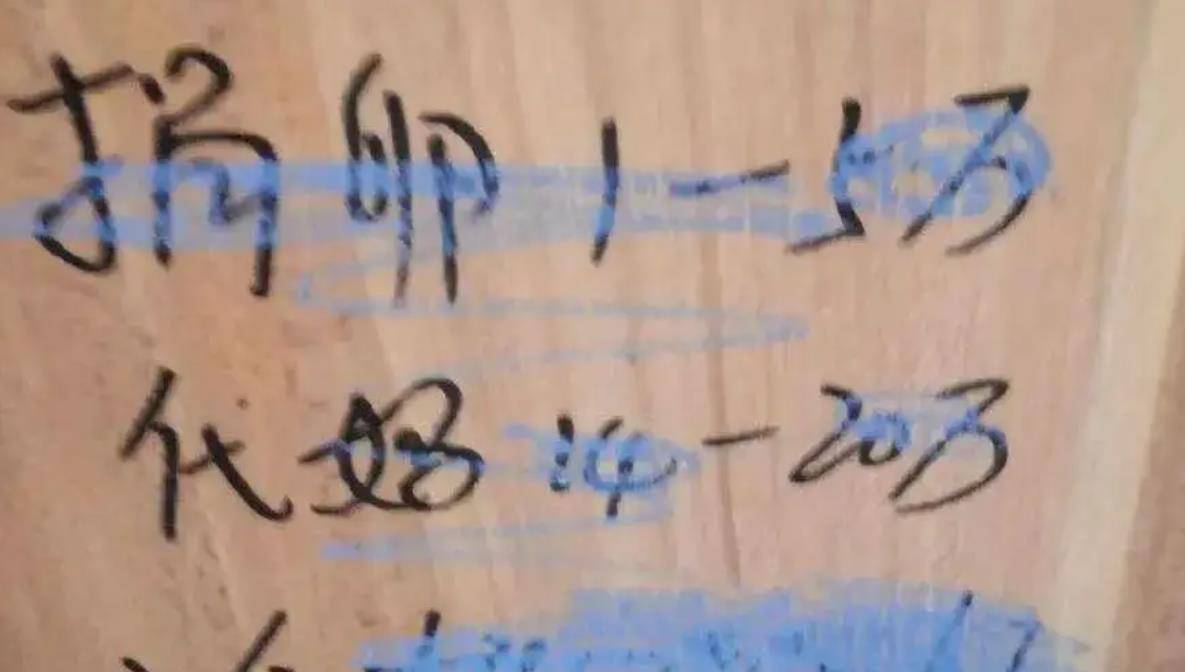 捐卵1-5万
代孕14-20万